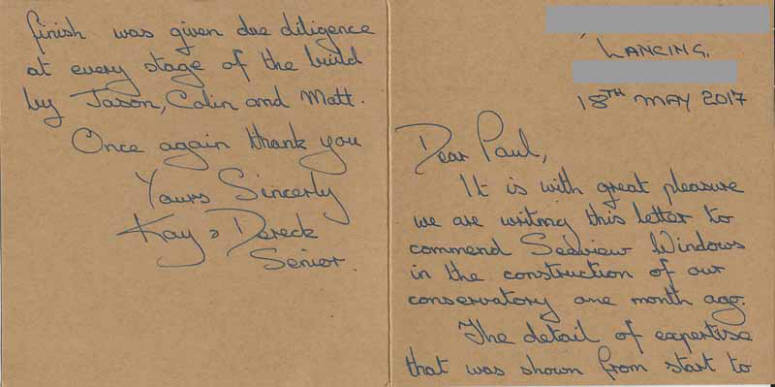 LANCING.
18TH MAY 2017
Dear Paul,
It is with great pleasure
we are writing this letter to
commend Seaview Windows
in the construction of our
conservatory one month ago.
The detail of expertise
that was shown from start to
finish was given due diligence
at every stage of the build
by Jason, Colin and Matt.
Once again thank you
Yours Sincerly
Kay & Dereck
Senior.